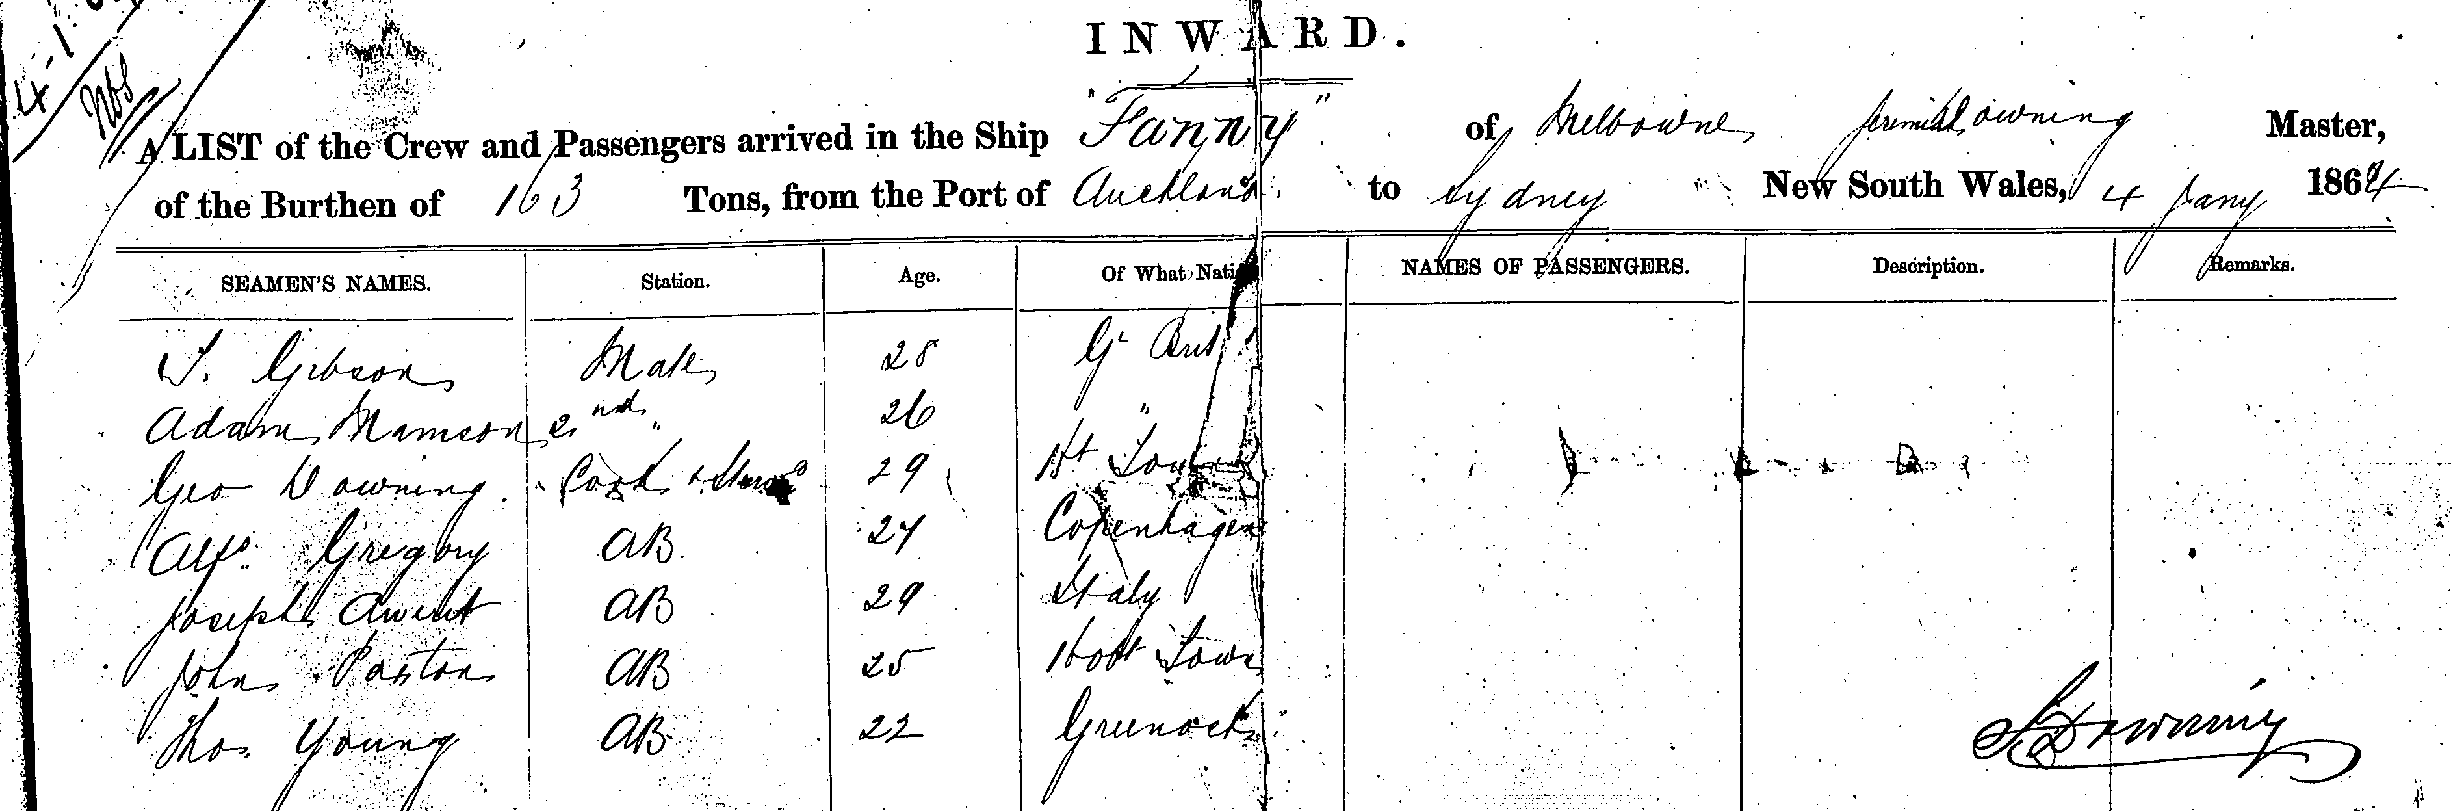 4-1-
INWARD.
A LIST of the Crew and Passengers arrived in the Ship "Fanny" of Melbourne Downing Master,
of the Burthen of 163 Tons, from the Port of Auckland to Sydney New South Wales, 4 Jany 1864
SEAMEN'S NAMES. Station. Age. Of What Nati NAMES OF PASSENGERS. Description. Remarks.
Gibson Mate 28 Gt Brit
Adam 2nd " 26 "
Geo Downing. Cook & 29 Ht Town
Gregory AB 24 Copenhagen
Joseph AB 29 Italy
John AB 25 Hobt Town
Thos Young AB 22 Greenock
J Downing